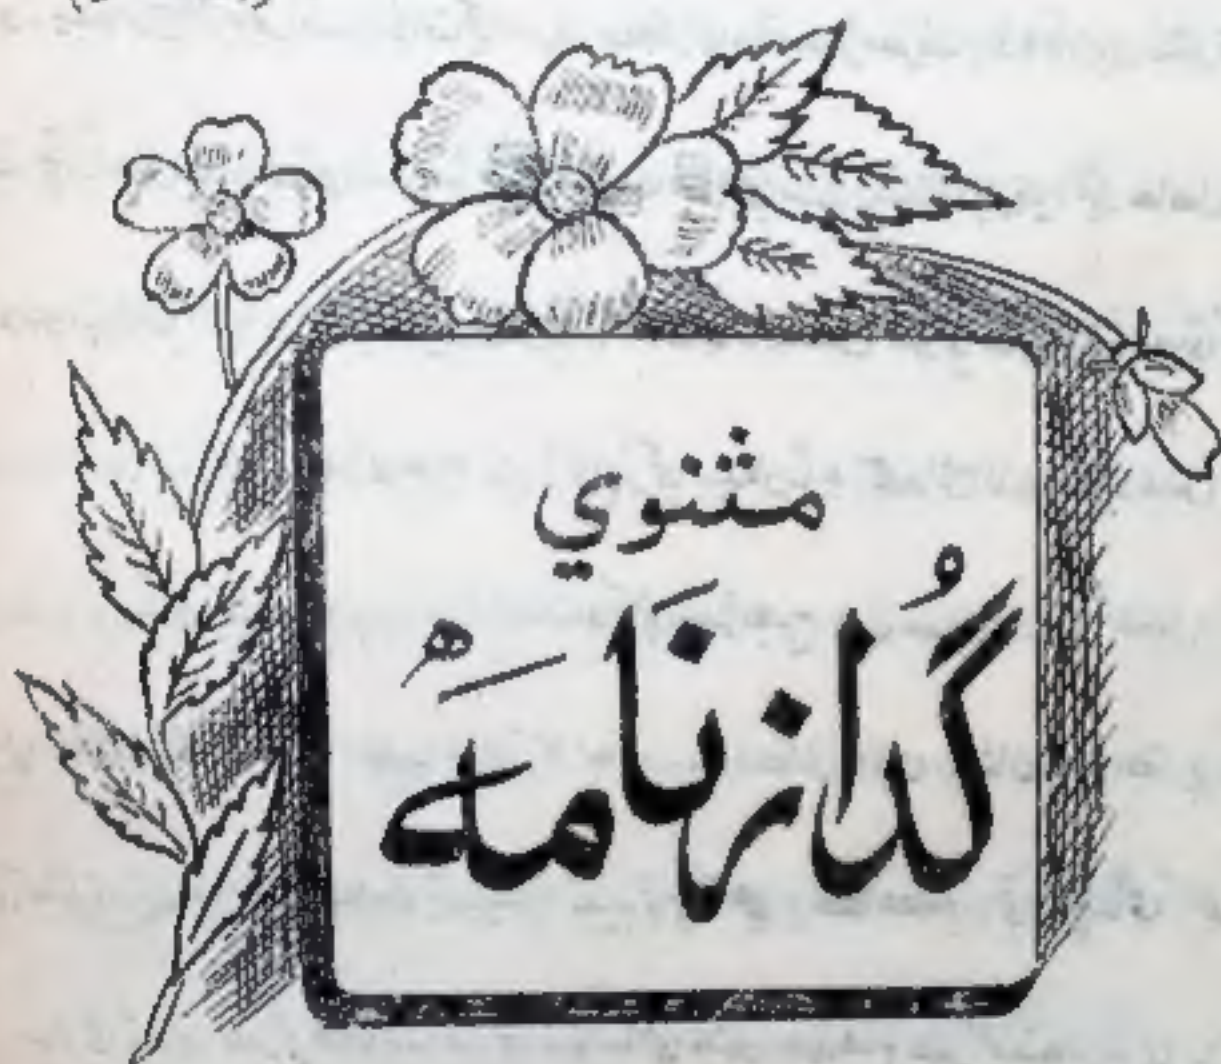 مثنوي
گُدازنَامَہ